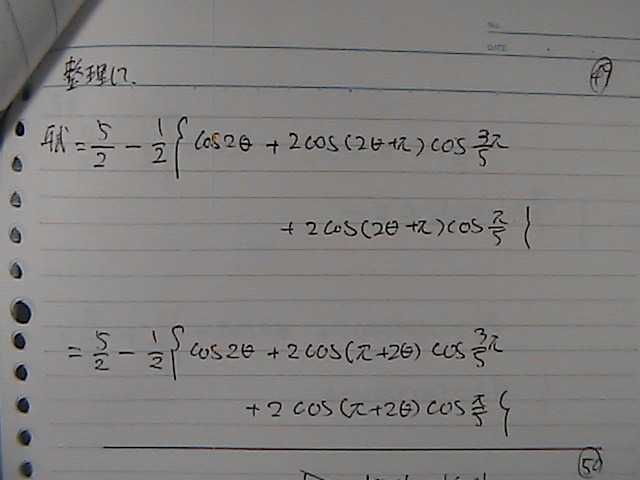 No.
DATE
整理して.
㊾
与式 = 5/2 - 1/2 { cos2θ + 2cos(2θ+π) cos 3/5 π
+ 2cos(2θ+π) cos π/5 }
= 5/2 - 1/2 { cos2θ + 2cos(π+2θ) cos 3/5 π
+ 2cos(π+2θ) cos π/5 }
㊿